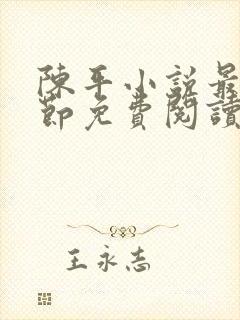 陳平小說最
節免費閱讀
王永志